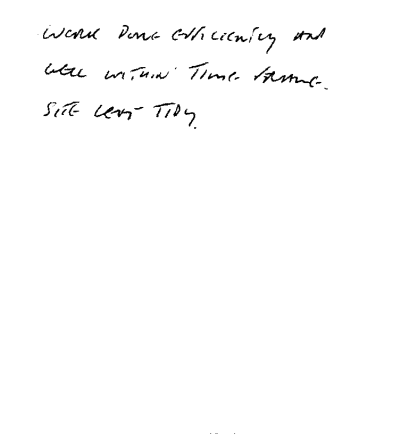 Work Done efficiently and
well within Time frame.
Site left Tidy.